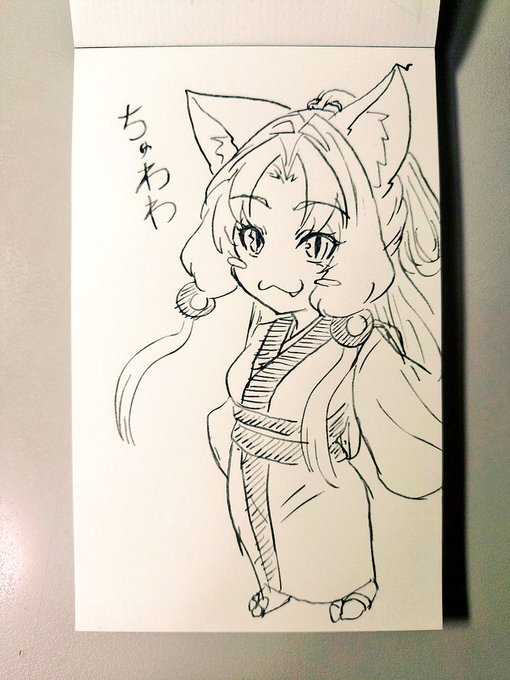 ちゅわわ